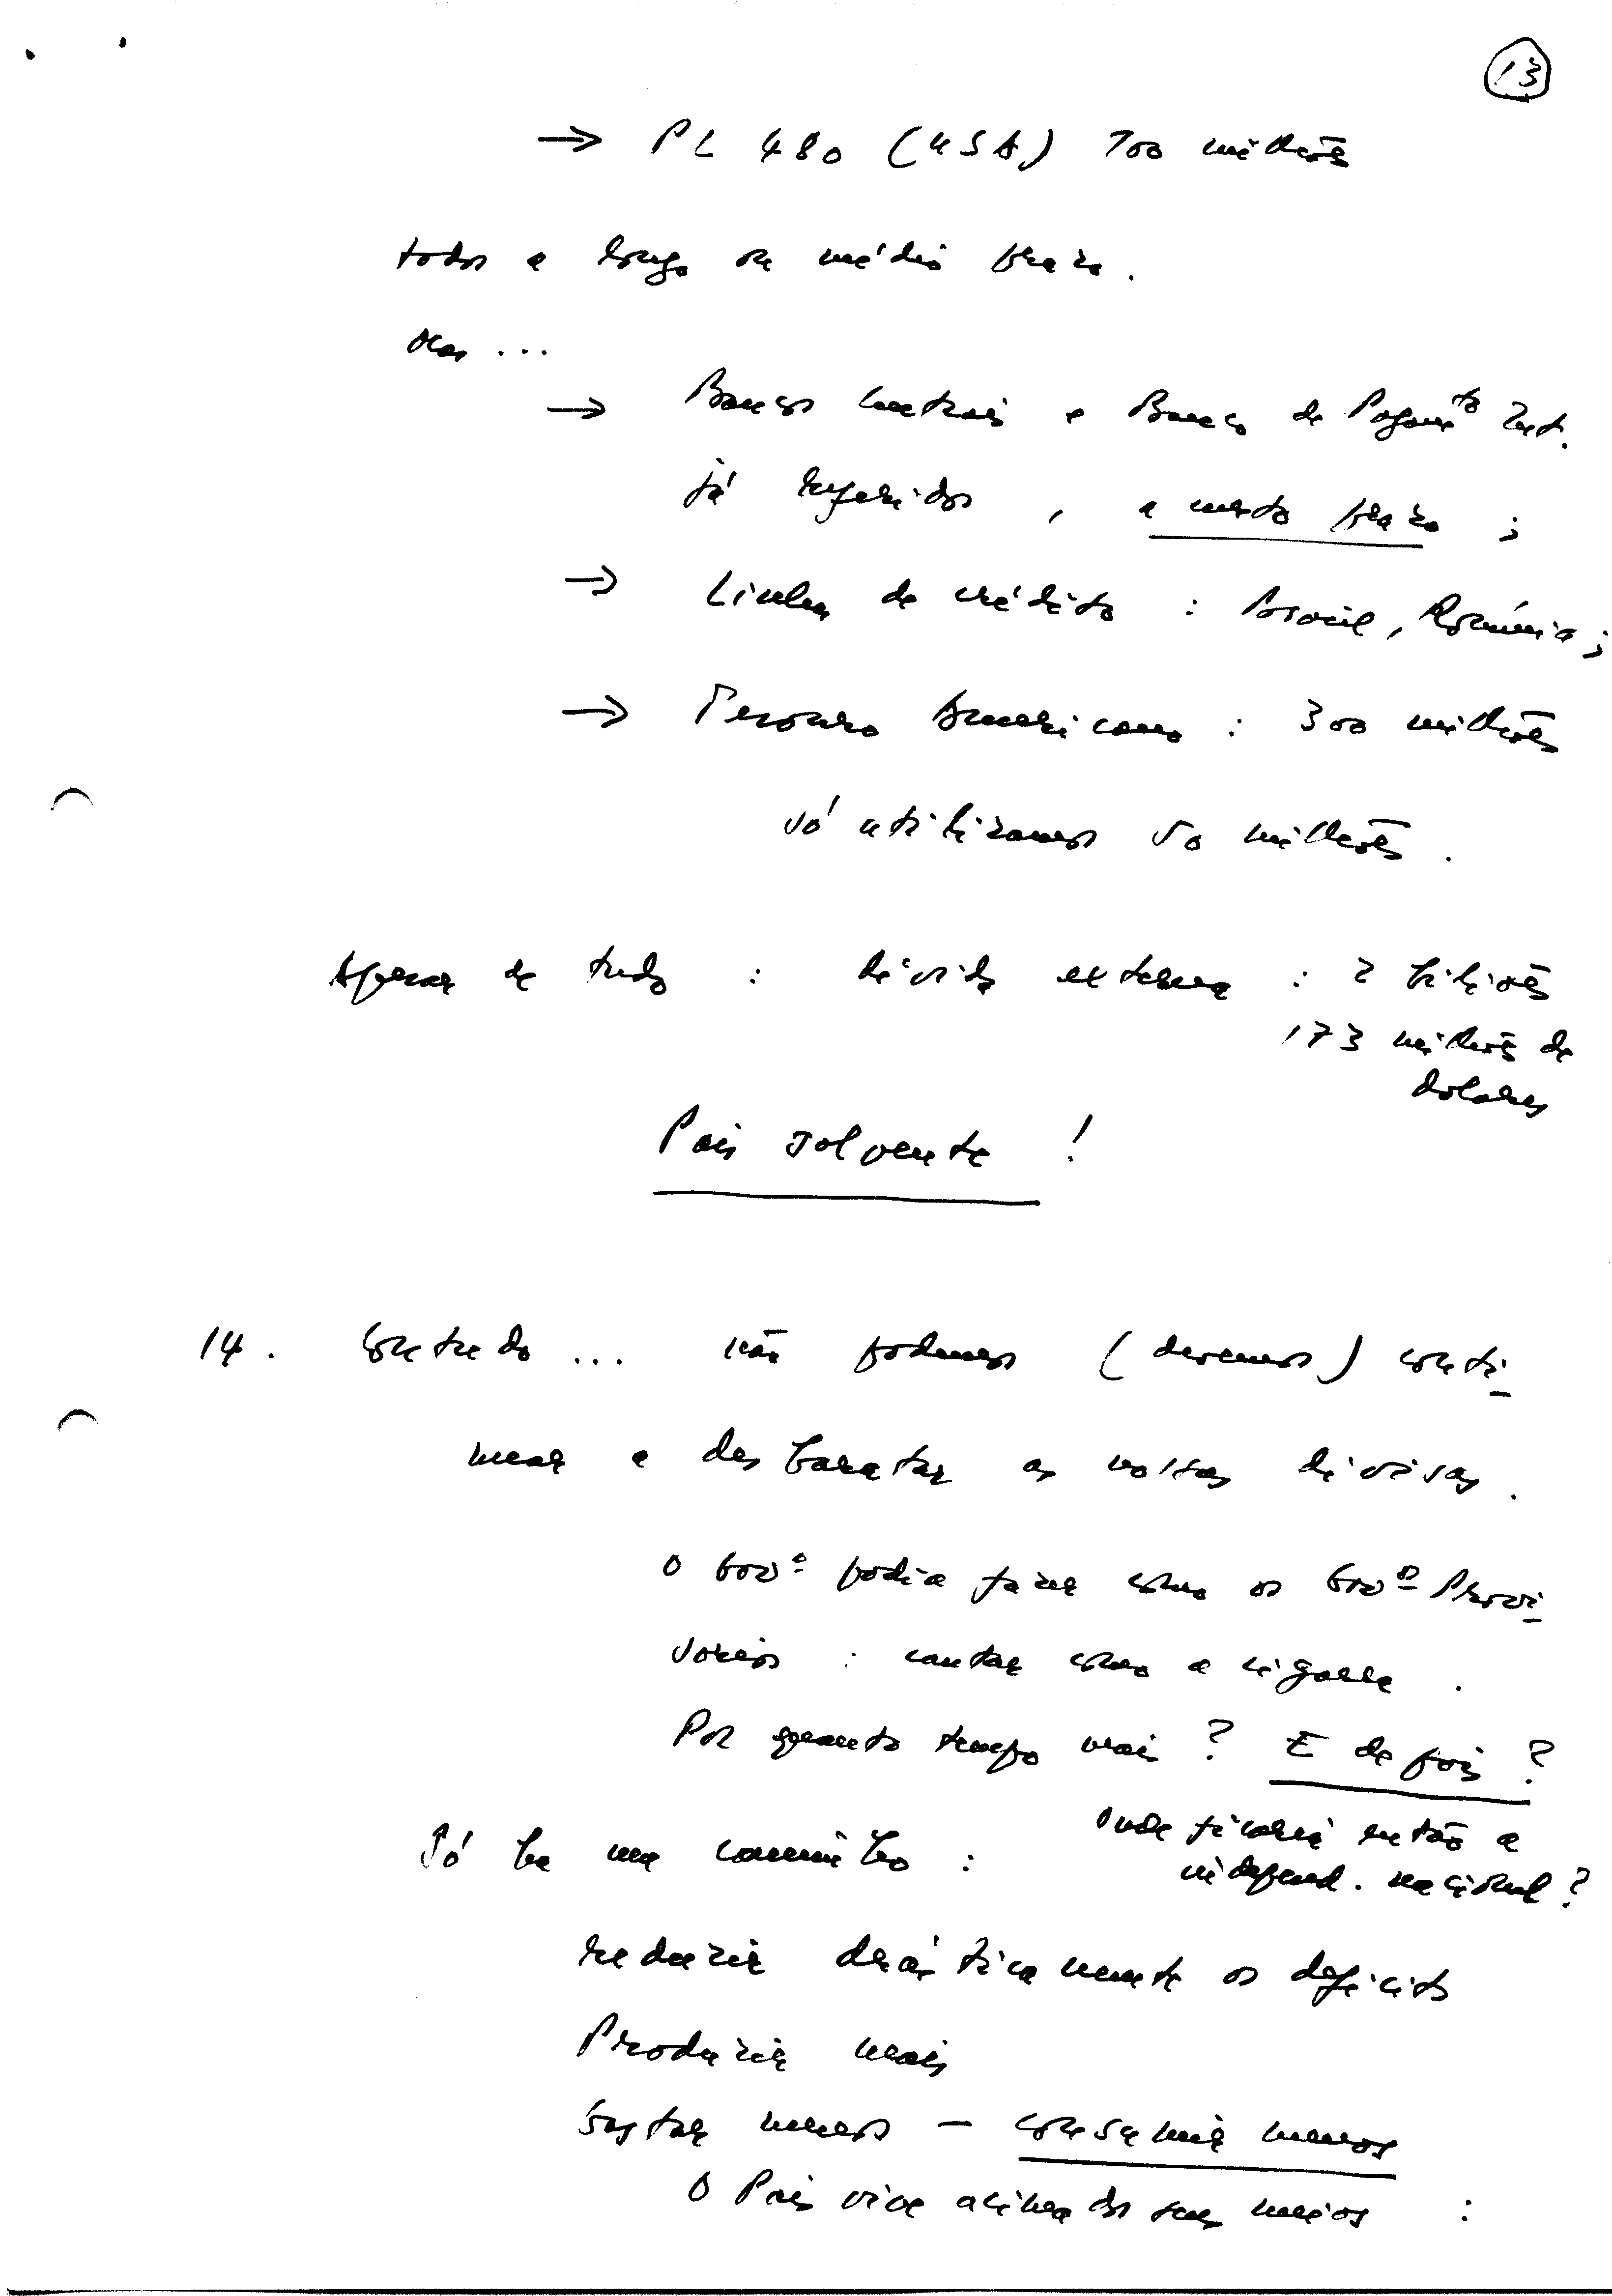 13
→ PL 480 (USA) 700 milhões
todos a longo ou médio prazo.
Mas ...
→ Bancos Centrais e Banco de Pagamto Int.
já referidos, a curto prazo;
→ Linhas de crédito : Brasil, Roménia;
→ Tesouro Americano : 300 milhões
só utilizamos 50 milhões.
Apesar de tudo : dívida externa : 2 biliões
173 milhões de
dolares
País solvente !
14. Contudo ... não podemos (devemos) conti-
nuar a desbaratar as nossas divisas.
O Govº podia fazer como os Govº Provi-
sórios : cantar como a cigarra.
Por quanto tempo mais ? E depois ?
Onde ficaria então a
independ. nacional ?
Só há um caminho :
reduzir drásticamente os deficits
Produzir mais
Gastar menos - consumir menos
O País vive acima dos seus meios :